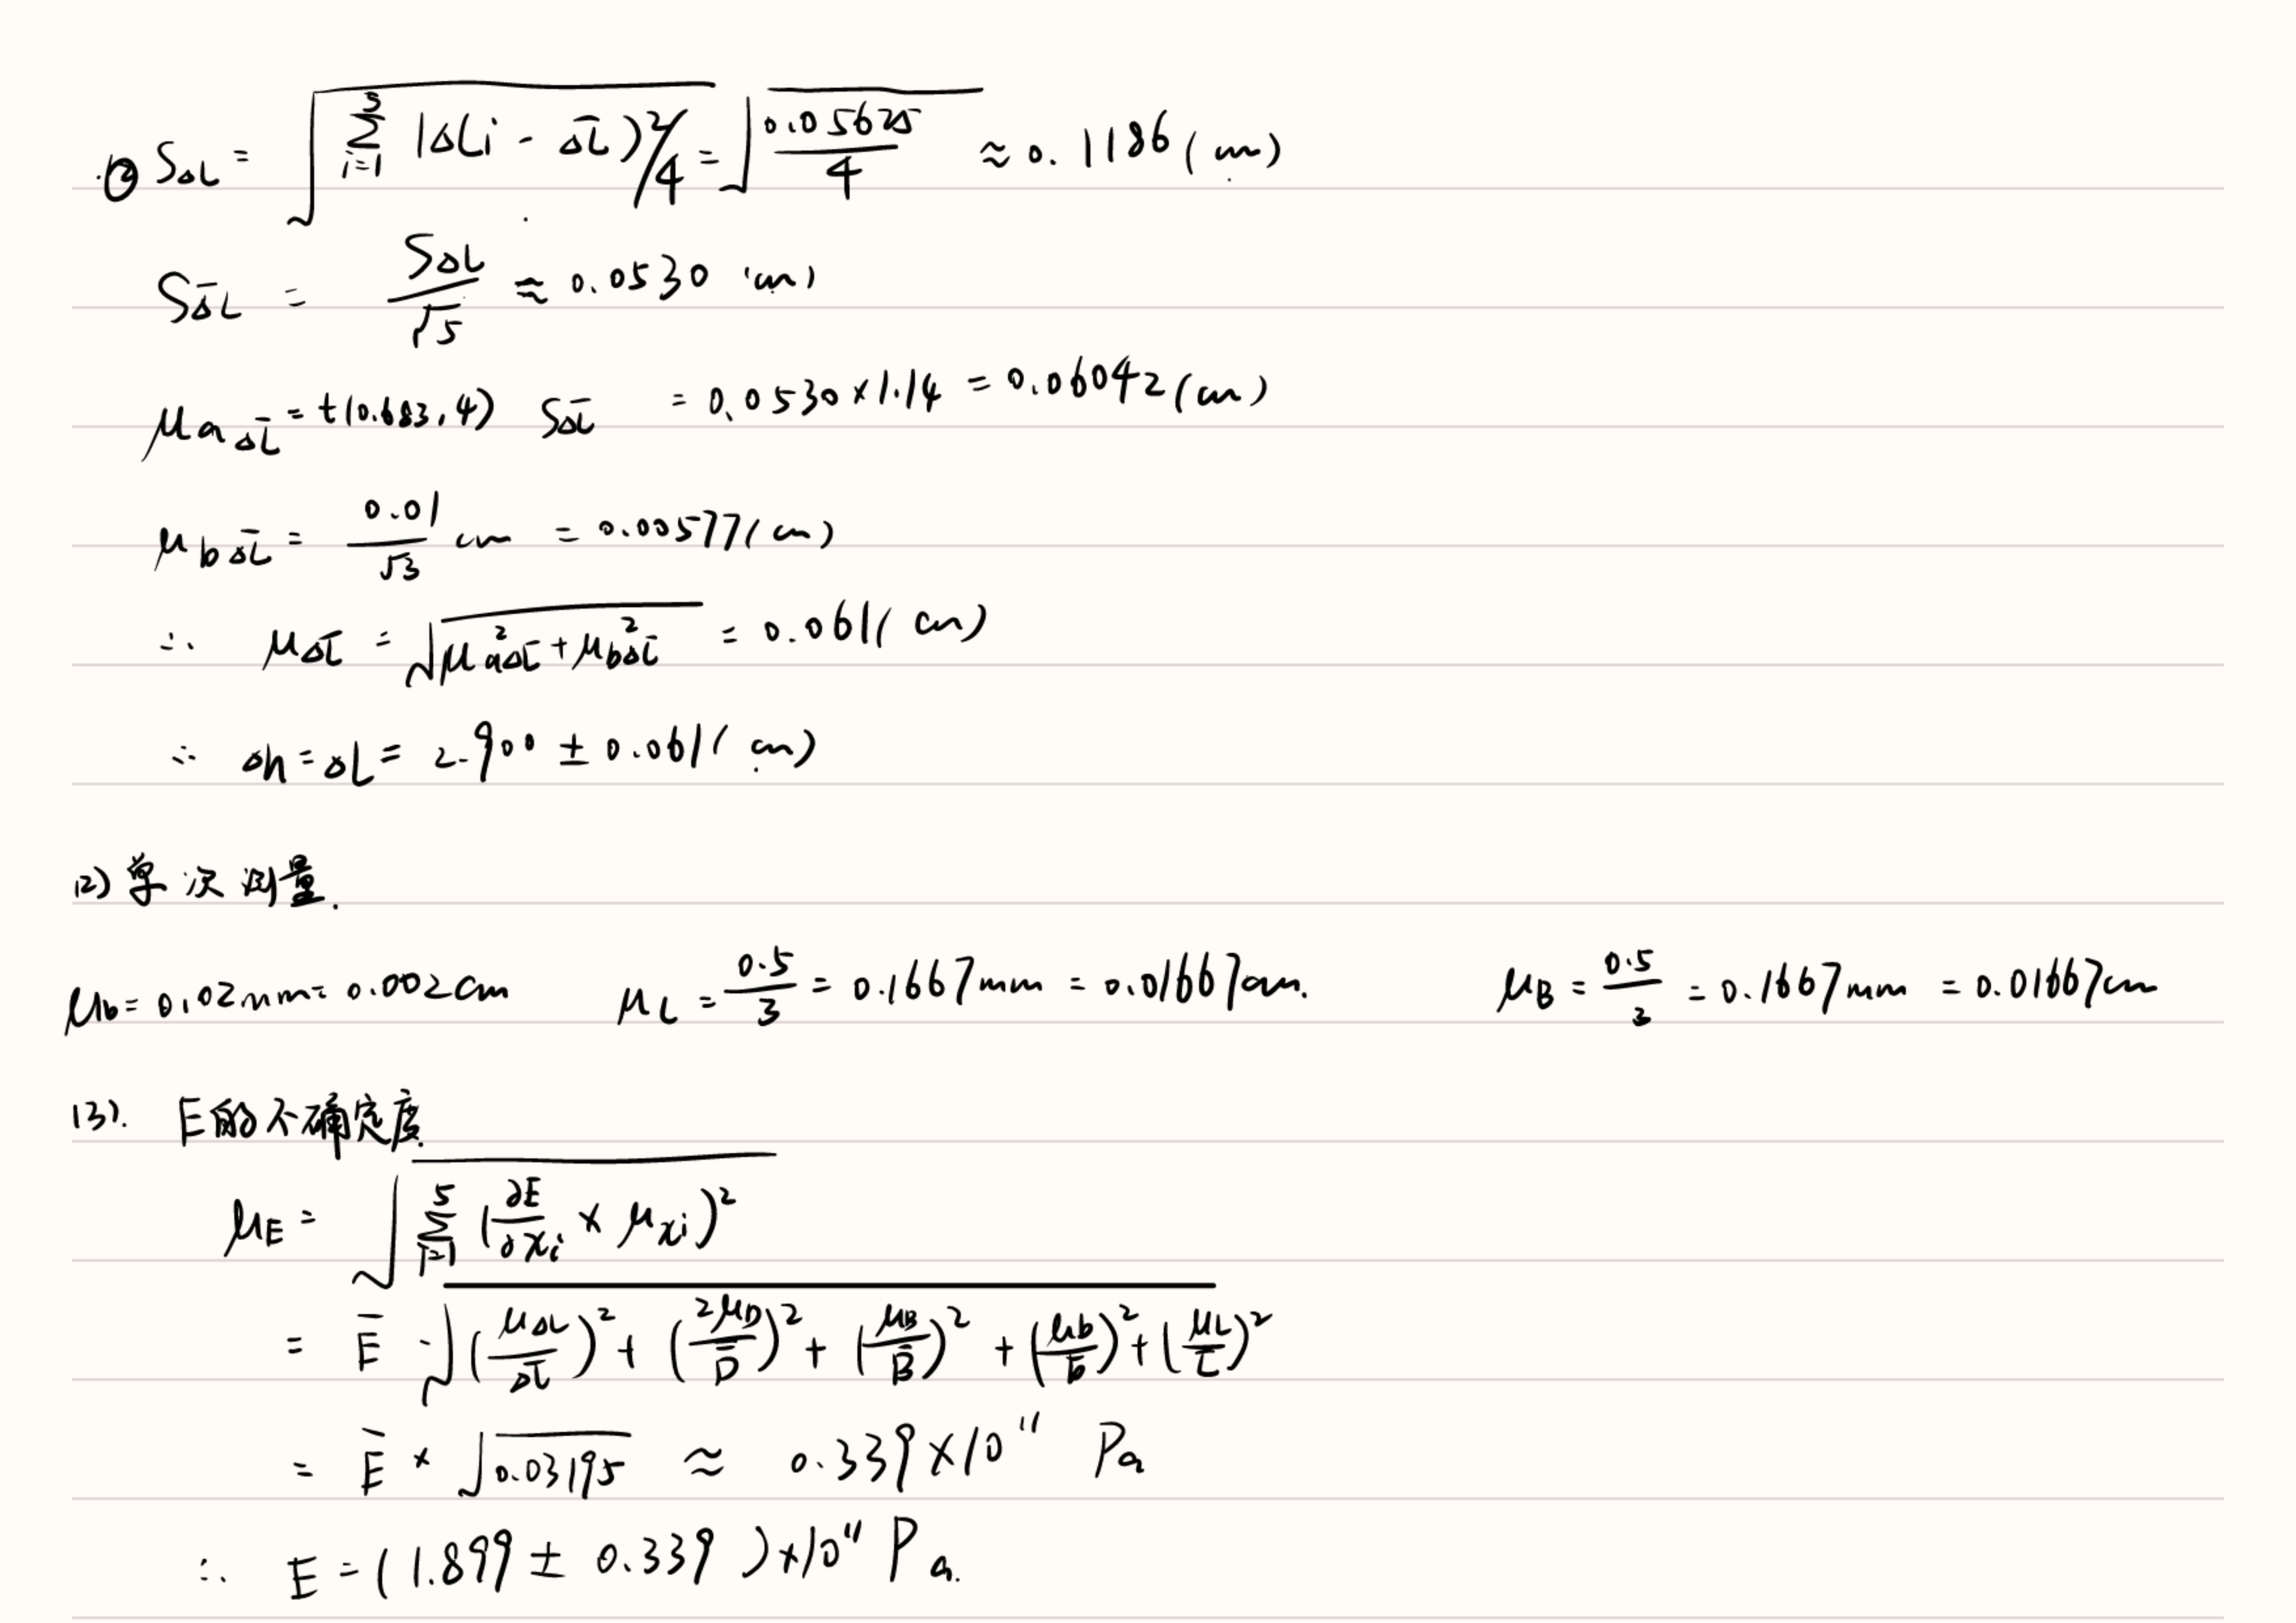 ② SΔL = √(Σ_{i=1}^{5} (ΔLi - Δ̄L̄)²/4) = √(0.05625/4) ≈ 0.1186 (cm)
SΔ̄L = SΔL/√5 ≈ 0.0530 (cm)
μaΔL̄ = t(0.683, 4) SΔL̄ = 0.0530×1.14 = 0.06042 (cm)
μbΔL̄ = 0.01/√3 cm = 0.00577 (cm)
∴ μΔL̄ = √(μ²aΔL̄ + μ²bΔL̄) = 0.061 (cm)
∴ Δh = ΔL = 2.900 ± 0.061 (cm)
(2) 单次测量.
μb = 0.02mm = 0.002cm μL = 0.5/3 = 0.1667mm = 0.01667cm. μB = 0.5/3 = 0.1667mm = 0.01667cm
(3). E的不确定度.
μE = √(Σ_{i=1}^{5} (∂E/∂xi × μxi)²)
= Ē · √((μΔL/ΔL̄)² + (2μD/D̄)² + (μB/B̄)² + (μb/b̄)² + (μL/L̄)²)
= Ē × √0.03195 ≈ 0.339×10¹¹ Pa
∴ E = (1.899 ± 0.339)×10¹¹ Pa.